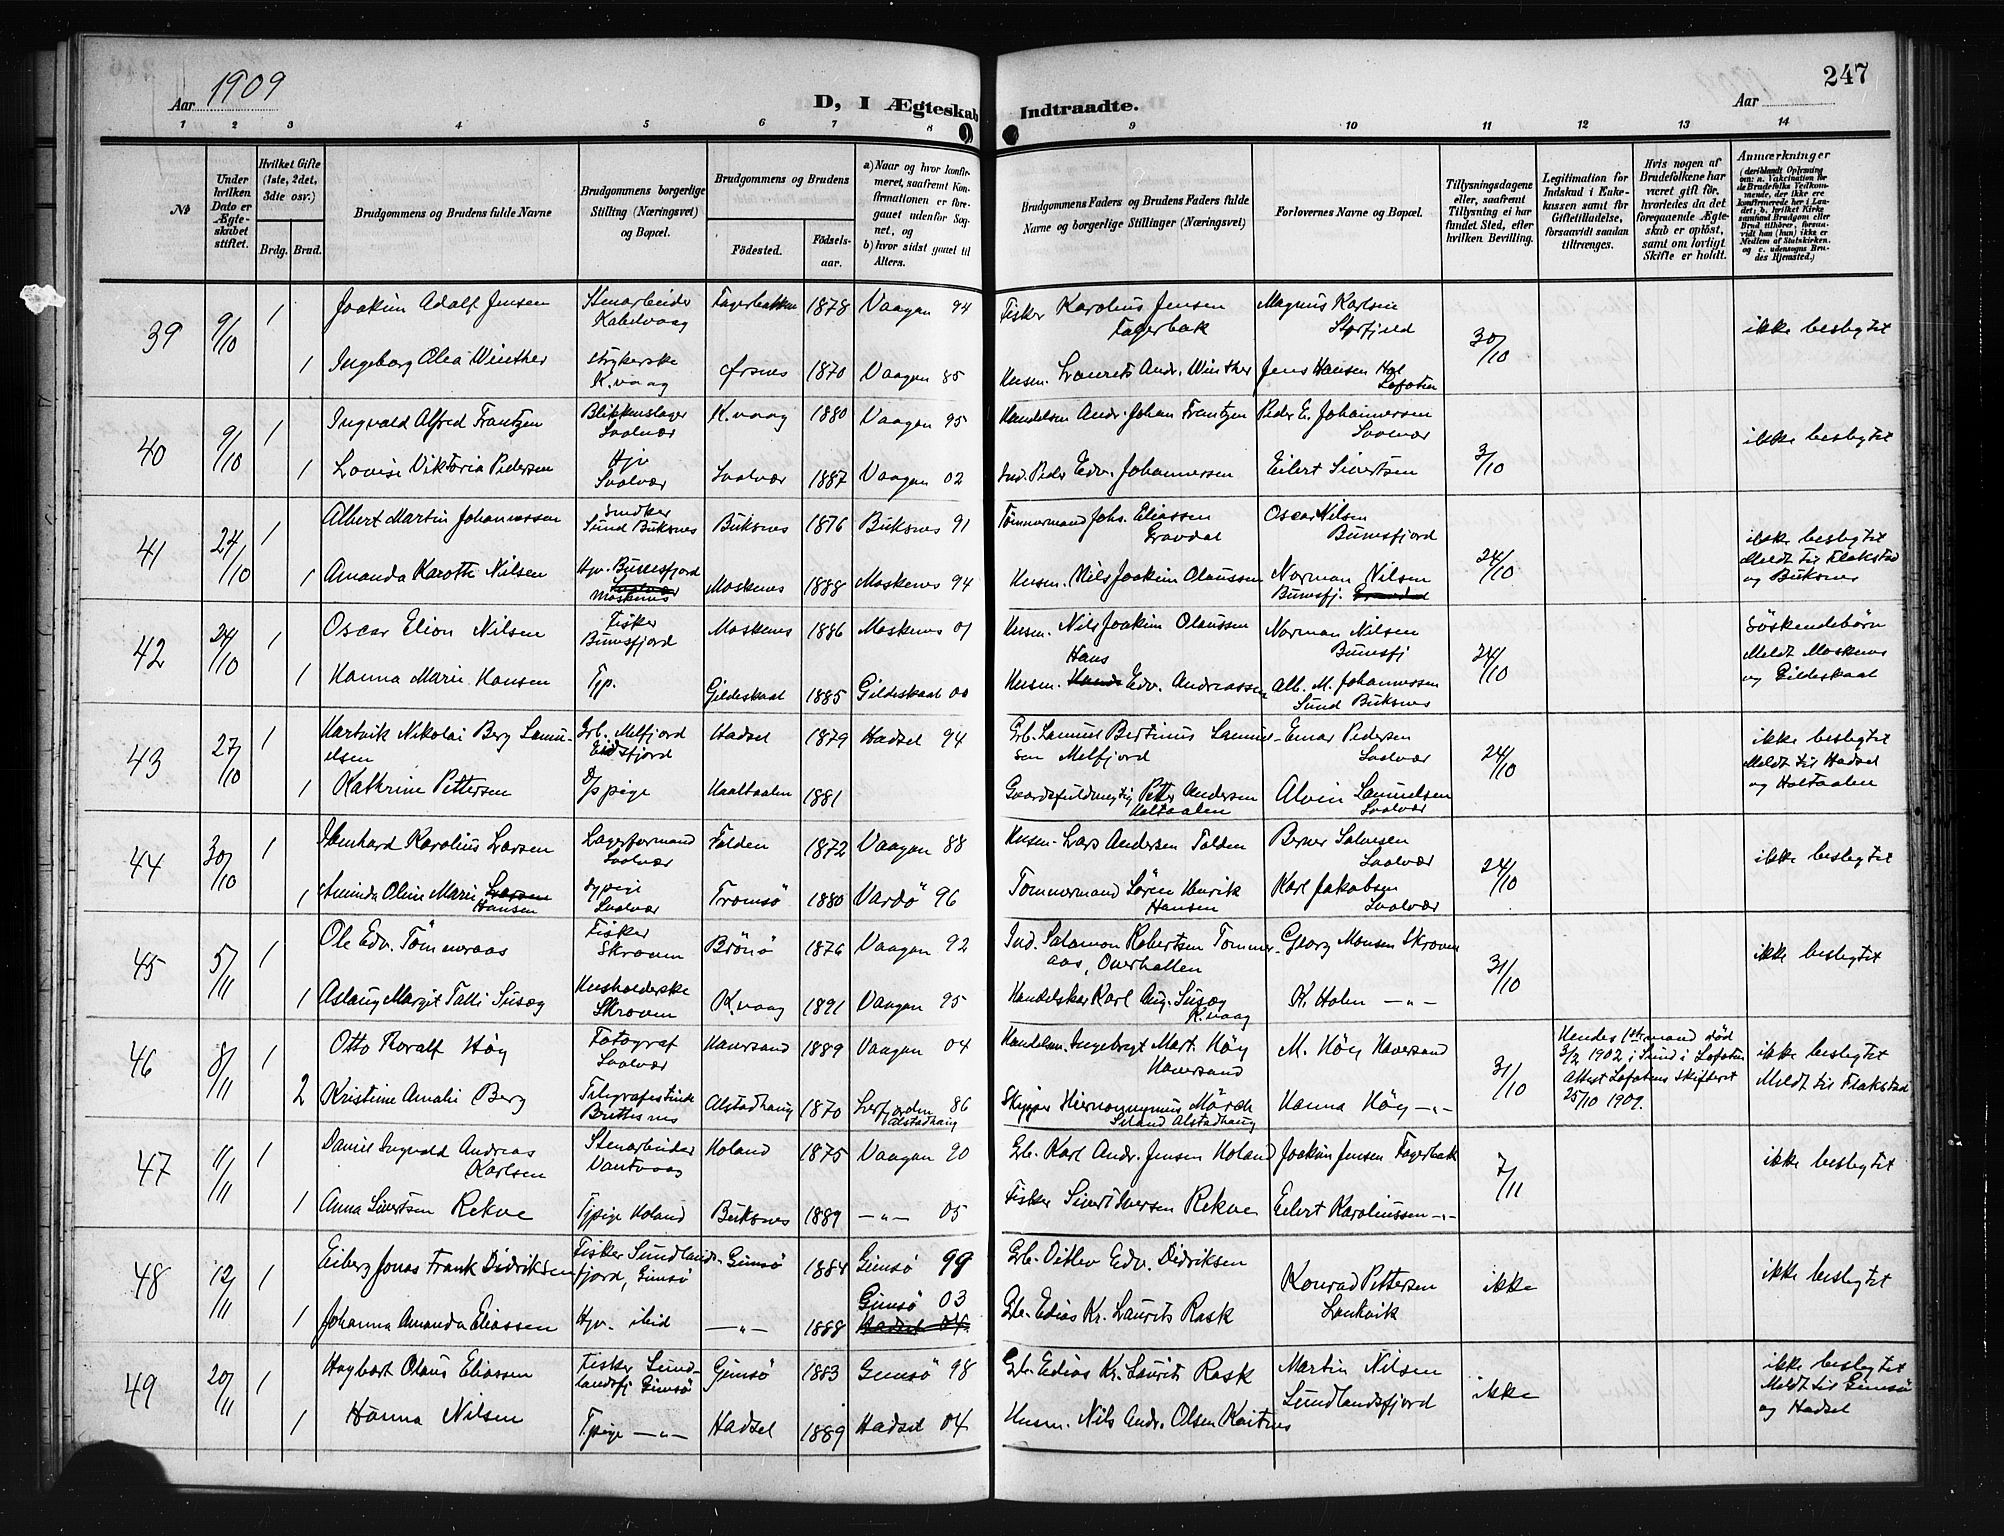 Aar 1909
D, I Ægteskab Indtraadte.
Aar
247
1 2 3 4 5 6 7 8 9 10 11 12 13 14
Nb
Under hvilken Dato er Ægteskabet stiftet.
Hvilket Gifte (1ste, 2det, 3die osv.)
Brdg. Brud.
Brudgommens og Brudens fulde Navne
Brudgommens borgerlige Stilling (Næringsvei) og Bopæl.
Brudgommens og Brudens
Fødested.
Fødselsaar.
a) Naar og hvor konfirmeret, saafremt Konfirmationen er foregaaet udenfor Sognet, og
b) hvor sidst gaaet til Alters.
Brudgommens Faders og Brudens Faders fulde Navne og borgerlige Stillinger (Næringsvei)
Forlovernes Navne og Bopæl.
Tillysningsdagene eller, saafremt Tillysning ei har fundet Sted, efter hvilken Bevilling.
Legitimation for Indskud i Enkekassen samt Giftetilladelse, forsaavidt saadan tiltrænges.
Hvis nogen af Brudefolkene har været gift før, hvorledes da det foregaaende Ægteskab er opløst, samt om lovligt Skifte er holdt.
Anmærkninger
39 9/10 1 Joakim Adolf Jensen Stenarbeider Kabelvaag Fagerbakken 1878 Vaagan 94 Fisker Karolius Jensen Fagerbak Magnus Karlsen Storfjeld 30/10 ikke beslegtet
1 Ingeborg Olea Winther Strykerske K.vaag Ørsnes 1870 Vaagan 85 Husm. Laurits Andr. Winther Jens Hansen Hol Lofoten
40 9/10 1 Ingvald Alfred Frantzen Blikkenslager Svolvær K.vaag 1880 Vaagan 95 Handelsm Andr. Johan Frantzen Peder E. Johannessen Svolvær 3/10 ikke beslegtet
1 Lovise Viktoria Pedersen Hjv Svolvær Svolvær 1887 Vaagan 02 Ind. Peder Edv. Johannessen Eilert Sivertsen
41 24/10 1 Albert Martin Johannessen Snedker Sund Buksnes Buksnes 1876 Buksnes 91 Tømmermand Johs. Eliassen Gravdal Oscar Nilsen Bunesfjord 24/10 ikke beslegtet Meldt til Flakstad og Buksnes
1 Amanda Karothe Nilsen Hjv. Bunesfjord Moskenes Moskenes 1888 Moskenes 94 Husm. Nils Joakim Olaussen Norman Nilsen Bunesfj.
42 24/10 1 Oscar Elion Nilsen Fisker Bunesfjord Moskenes 1886 Moskenes 01 Husm. Nils Joakim Olaussen Norman Nilsen Bunesfj 24/10 Søskendebørn Meldt Moskenes og Gildeskaal
1 Hanna Marie Hansen Tjp. Gildeskaal 1885 Gildeskaal 00 Husm. Hans Edv. Andreassen Alb. M. Johannessen Sund Buksnes
43 27/10 1 Hartvik Nikolai Berg Samuelsen Grb. Melfjord Eidsfjord Hadsel 1879 Hadsel 94 Grb. Samuel Bertinus Samuelsen Melfjord Einar Pedersen Svolvær 24/10 ikke beslegtet Meldt til Hadsel og Holtaalen
1 Kathrine Pettersen D/s pige Haaltaalen 1881 Gaardsfuldmegtig Petter Andersen Aaltaalen Alvin Samuelsen Svolvær
44 30/10 1 Karolius Larsen Lagerformand Svolvær Folden 1872 Vaagan 88 Husm. Lars Andersen Folden Berner Salvesen Svolvær 24/10 ikke beslegtet
1 Aminda Oline Marie Hansen Tjpige Svolvær Tromsö 1880 Vardö 96 Tømmermand Sören Henrik Hansen Karl Jakobsen Svolvær
45 5/11 1 Ole Edv. Tömmeraas Fisker Skroven Brönö 1876 Vaagan 92 Ind. Salamon Robertsen Tommeraas, Overhallen Georg Monsen Skroven 31/10 ikke beslegtet
1 Aslaug Margit Talli Susæg Husholderske Skroven K.vaag 1891 Vaagan 95 Handelskar Karl Aug. Susæg K.vaag K. Holm -"-
46 8/11 1 Otto Roralf Höy Fotograf Svolvær Haversand 1889 Vaagan 04 Handelsm. Ingebrigt Mart. Höy Haversand M. Höy Haversand 31/10 Hendes 1ste mand död 3/2 1902 i Sund i Lofoten Attest Lofotens Skifteret 25/10 1909. ikke beslegtet Meldt til Flakstad
2 Kristine Amalie Berg Telegrafistinde Alstadhaug 1870 Leirfjorden Alstadhaug 86 Skipper Hieronymus Mörch Alstadhaug Hanna Höy -"-
47 11/11 1 Daniel Ingvald Andreas Karlsen Stenarbeider Vantvaag Holand 1875 Vaagan 90 Grb. Karl Andr. Jensen Holand Joakim Jensen Fagerbak 7/11 ikke beslegtet
1 Anna Sivertsen Rekve Tjpige Holand Buksnes 1889 -"- 05 Fisker Sivert Iversen Rekve Eilert Karoliussen -"-
48 12/11 1 Eiberg Jonas Frank Didriksen Fisker Sundlandsfjord, Gimsö Gimsö 1884 Gimsö 99 Grb. Ditlev Edv. Didriksen Konrad Pettersen Laukvik ikke ikke beslegtet
1 Johanna Amanda Eliassen Hjv. ibid -"- 1888 Gimsö 03 Hadsel 04. Grb. Edias Kr. Laurits Rask
49 20/11 1 Hagbart Olaus Eliassen Fisker Sundlandsfj Gimsö Gimsö 1883 Gimsö 98 Grb. Edias Kr. Laurits Rask Martin Nilsen Sundlandsfjord ikke ikke beslegtet Meldt til Gimsö og Hadsel
1 Hanna Nilsen Tjpige -"- Hadsel 1889 Hadsel 04 Husm. Nils Andr. Olsen Kaitnes